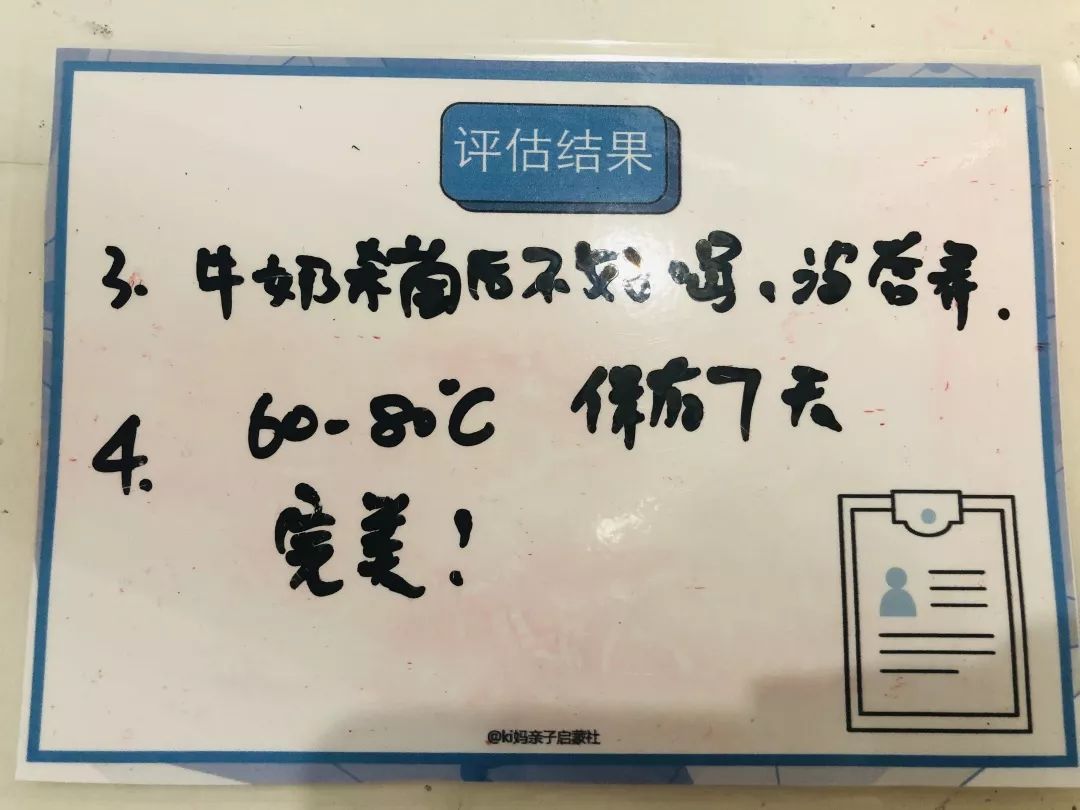 评估结果
3. 牛奶杀菌后不好喝,没营养.
4. 60-80℃ 保存7天
完美!
@ki妈亲子启蒙社